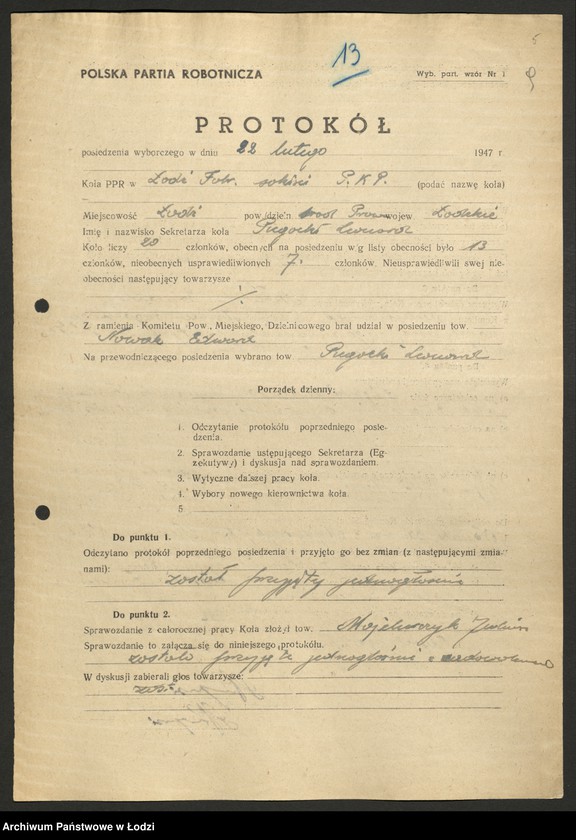 5
13
POLSKA PARTIA ROBOTNICZA
Wyb. part. wzór Nr 1
9
PROTOKÓŁ
posiedzenia wyborczego w dniu 22 lutego 1947 r.
Koła PPR w Łodź P.K.P. (podać nazwę koła)
Miejscowość Łódź powidzieln wojew Łódzkie
Imię i nazwisko Sekretarza koła
Koło liczy 20 członków, obecnych na posiedzeniu w/g listy obecności było 13
członków, nieobecnych usprawiedliwionych 7. członków. Nieusprawiedliwili swej nie-
obecności następujący towarzysze
Z ramienia Komitetu Pow., Miejskiego, Dzielnicowego brał udział w posiedzeniu tow.
Nowak Edward
Na przewodniczącego posiedzenia wybrano tow.
Porządek dzienny:
1. Odczytanie protokółu poprzedniego posie-
dzenia.
2. Sprawozdanie ustępującego Sekretarza (Eg-
zekutywy) i dyskusja nad sprawozdaniem.
3. Wytyczne dalszej pracy koła.
4. Wybory nowego kierownictwa koła.
5
Do punktu 1.
Odczytano protokół poprzedniego posiedzenia i przyjęto go bez zmian (z następującymi zmia-
nami):
został przyjęty jednogłośnie
Do punktu 2.
Sprawozdanie z całorocznej pracy Koła złożył tow.
Sprawozdanie to załącza się do niniejszego protokółu.
zostało przyjęte jednogłośnie
W dyskusji zabierali głos towarzysze:
Archiwum Państwowe w Łodzi